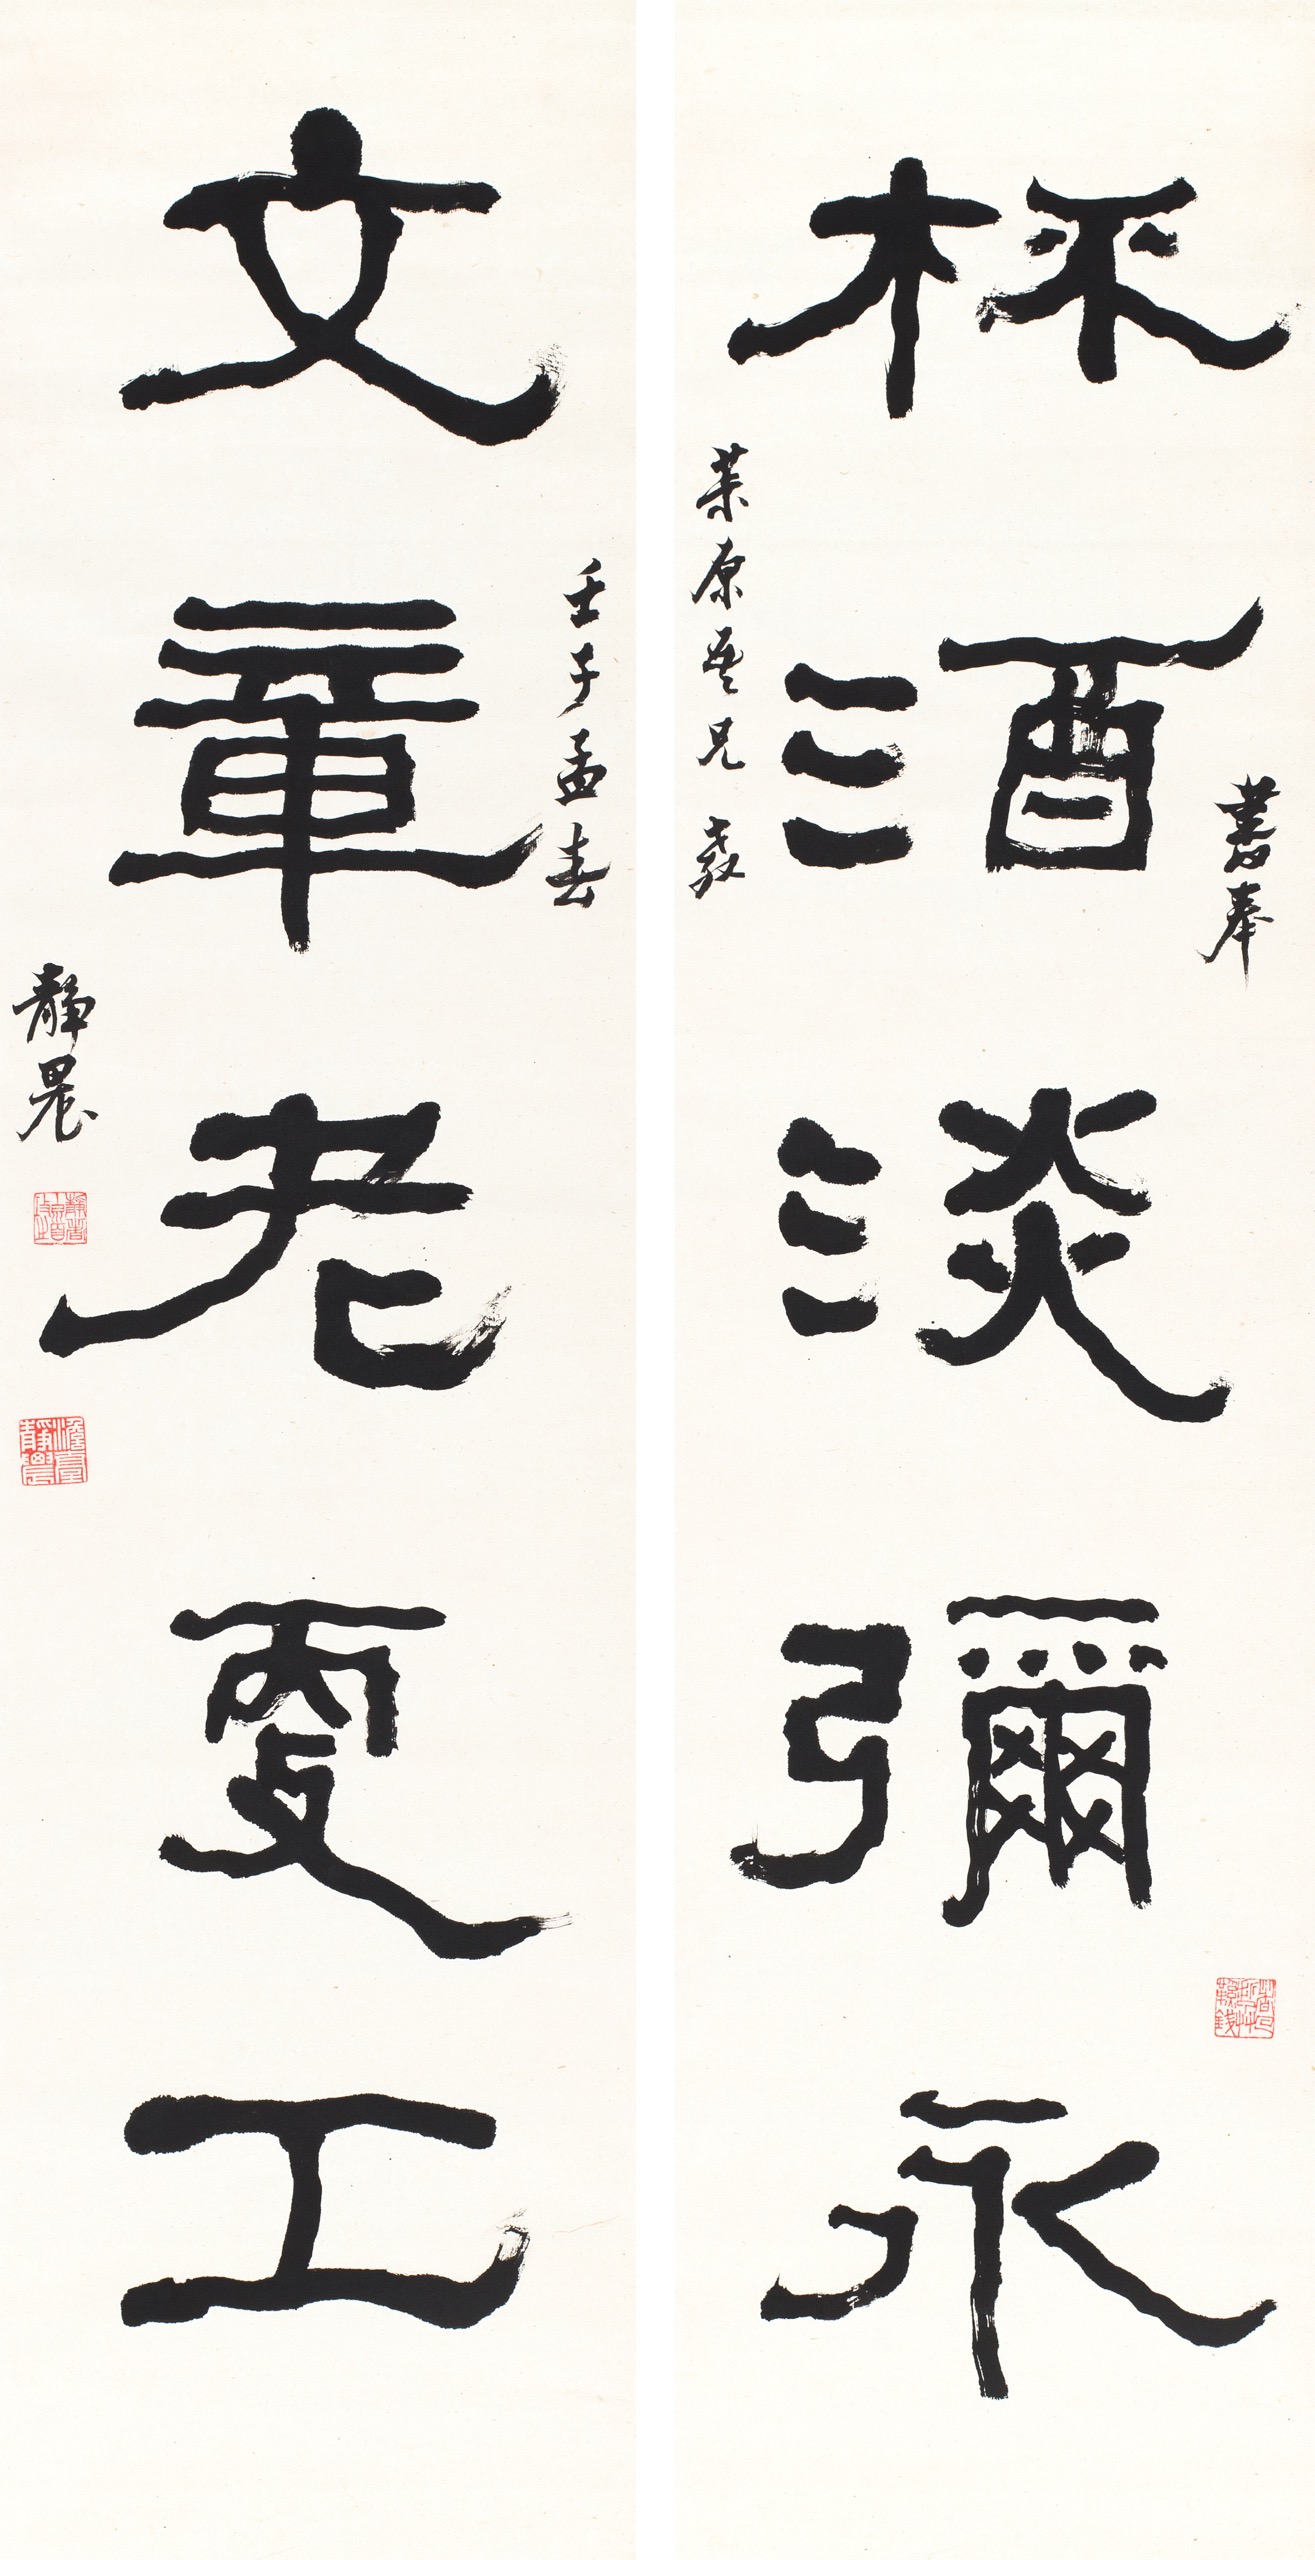 杯酒淡彌永
書奉
葉原吾兄教
文章老更工
壬子孟春
靜農